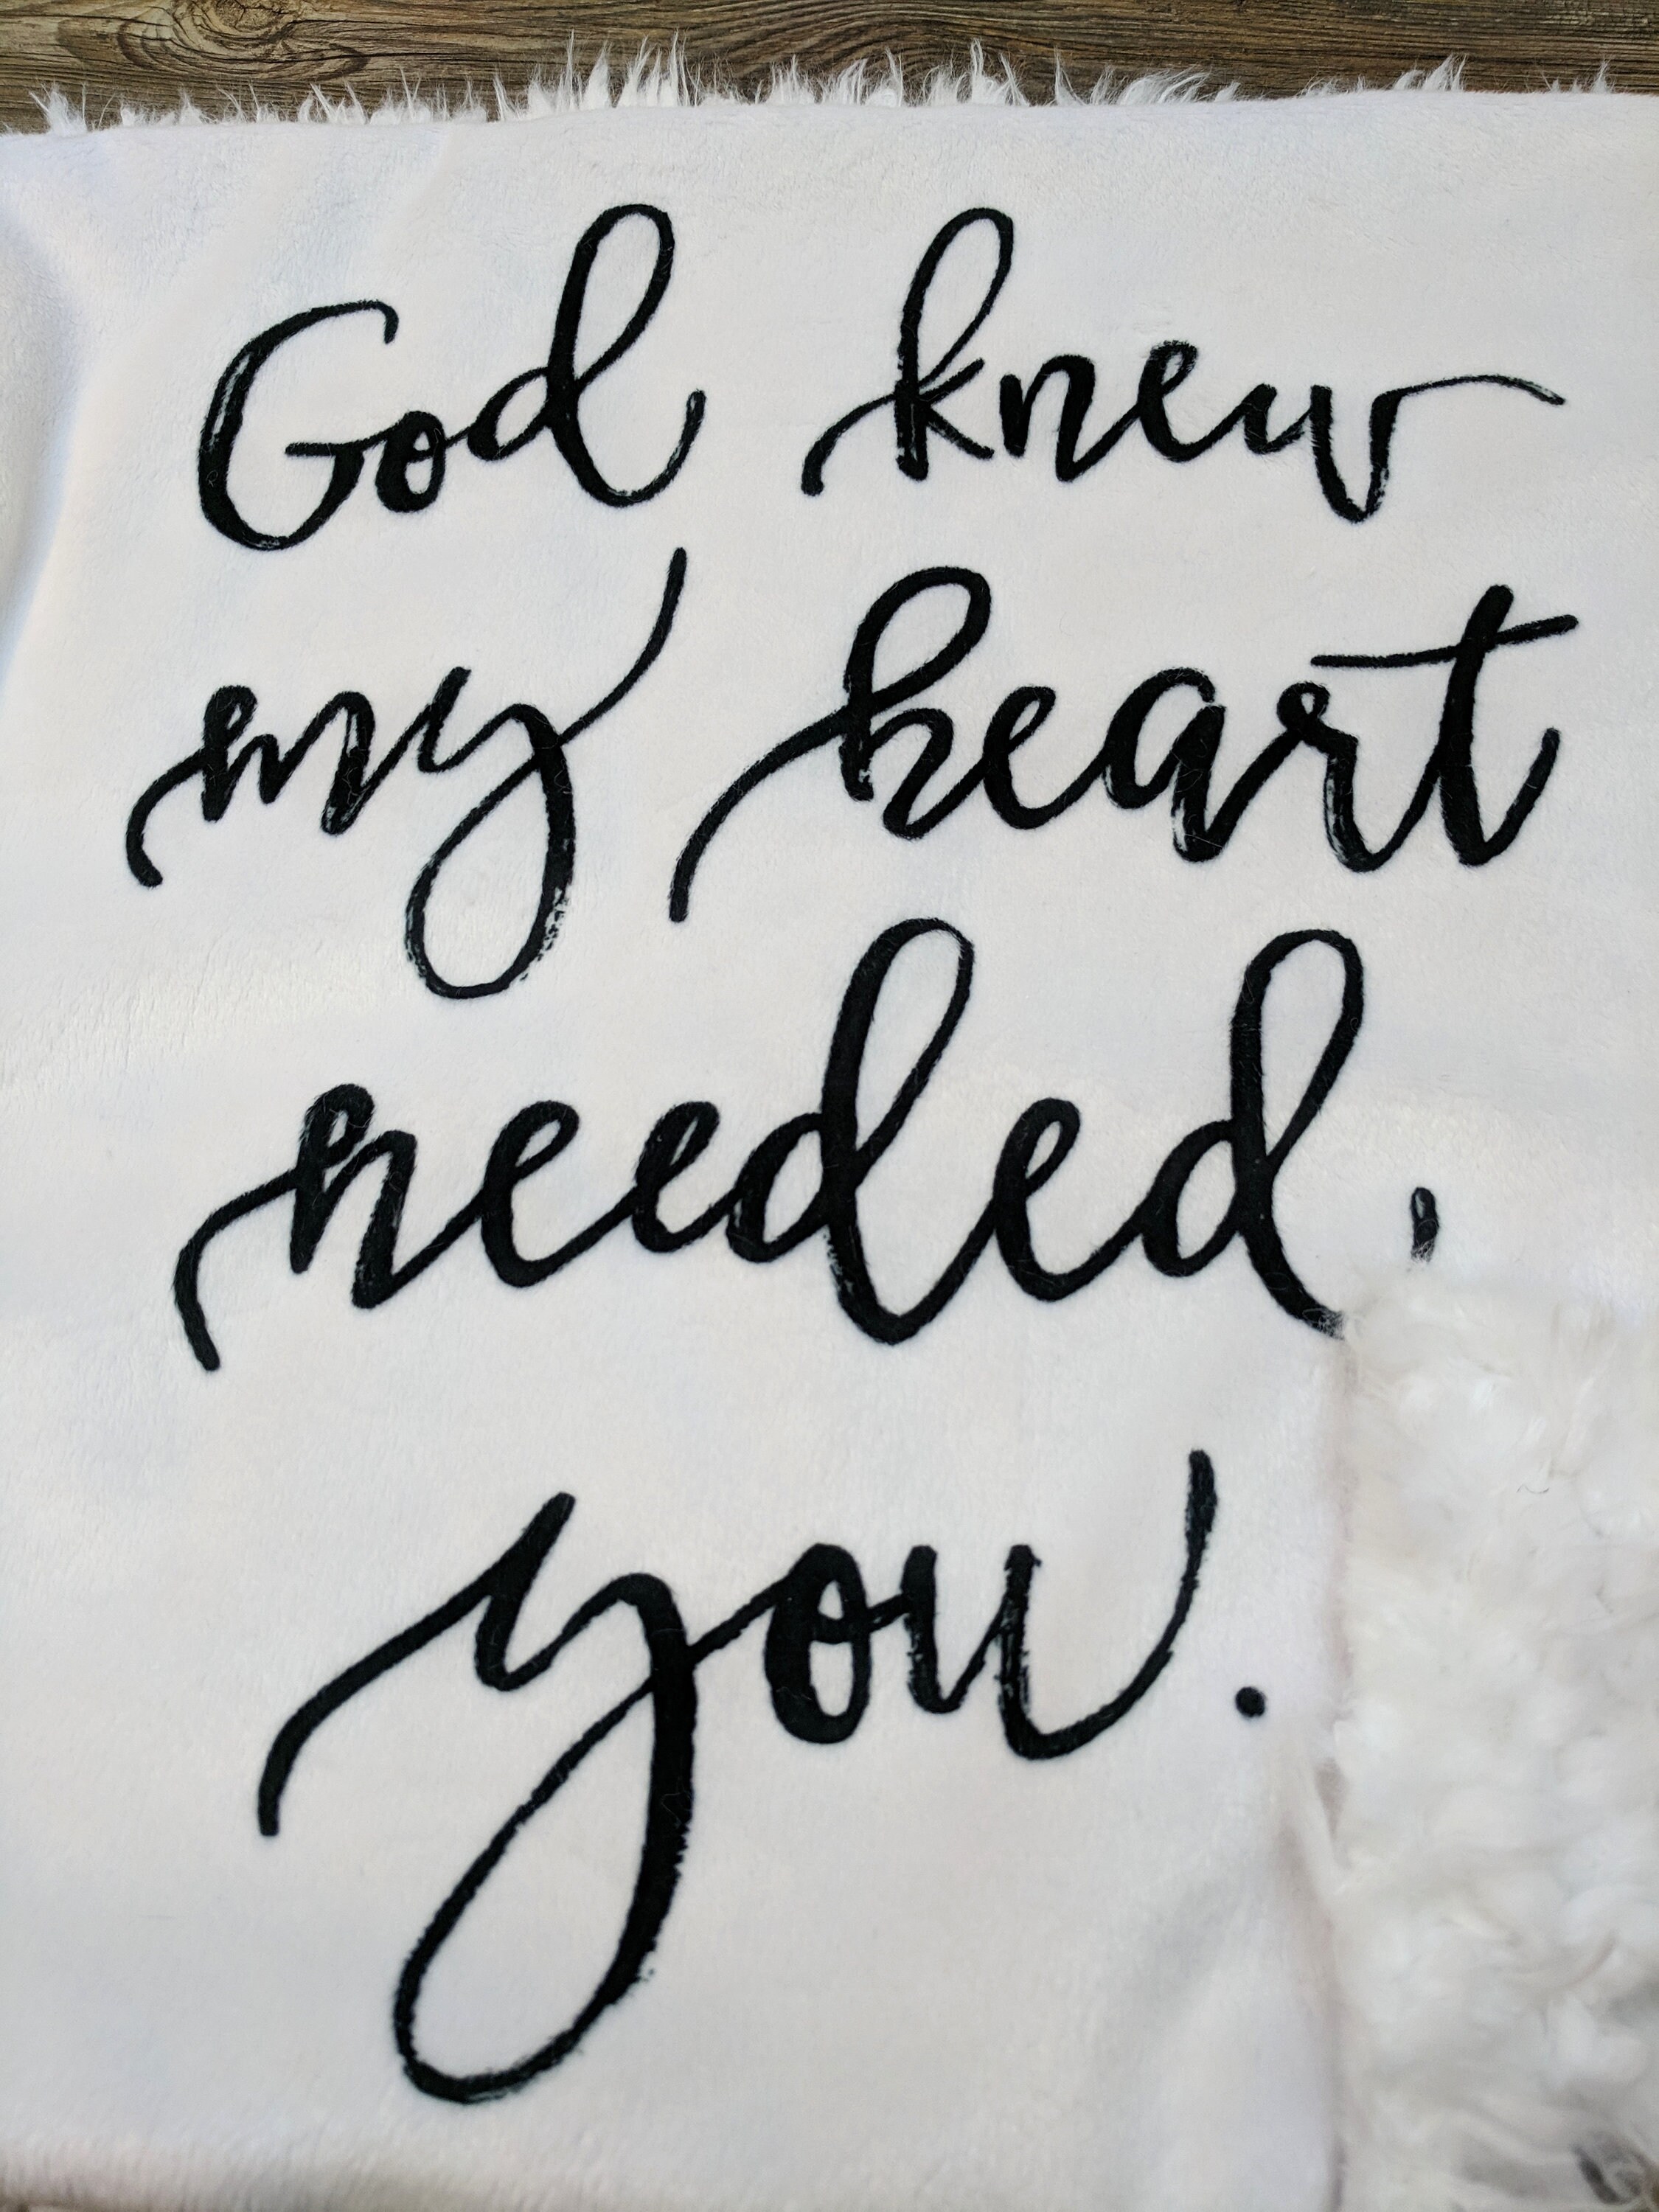 God knew
my heart
needed.
you.